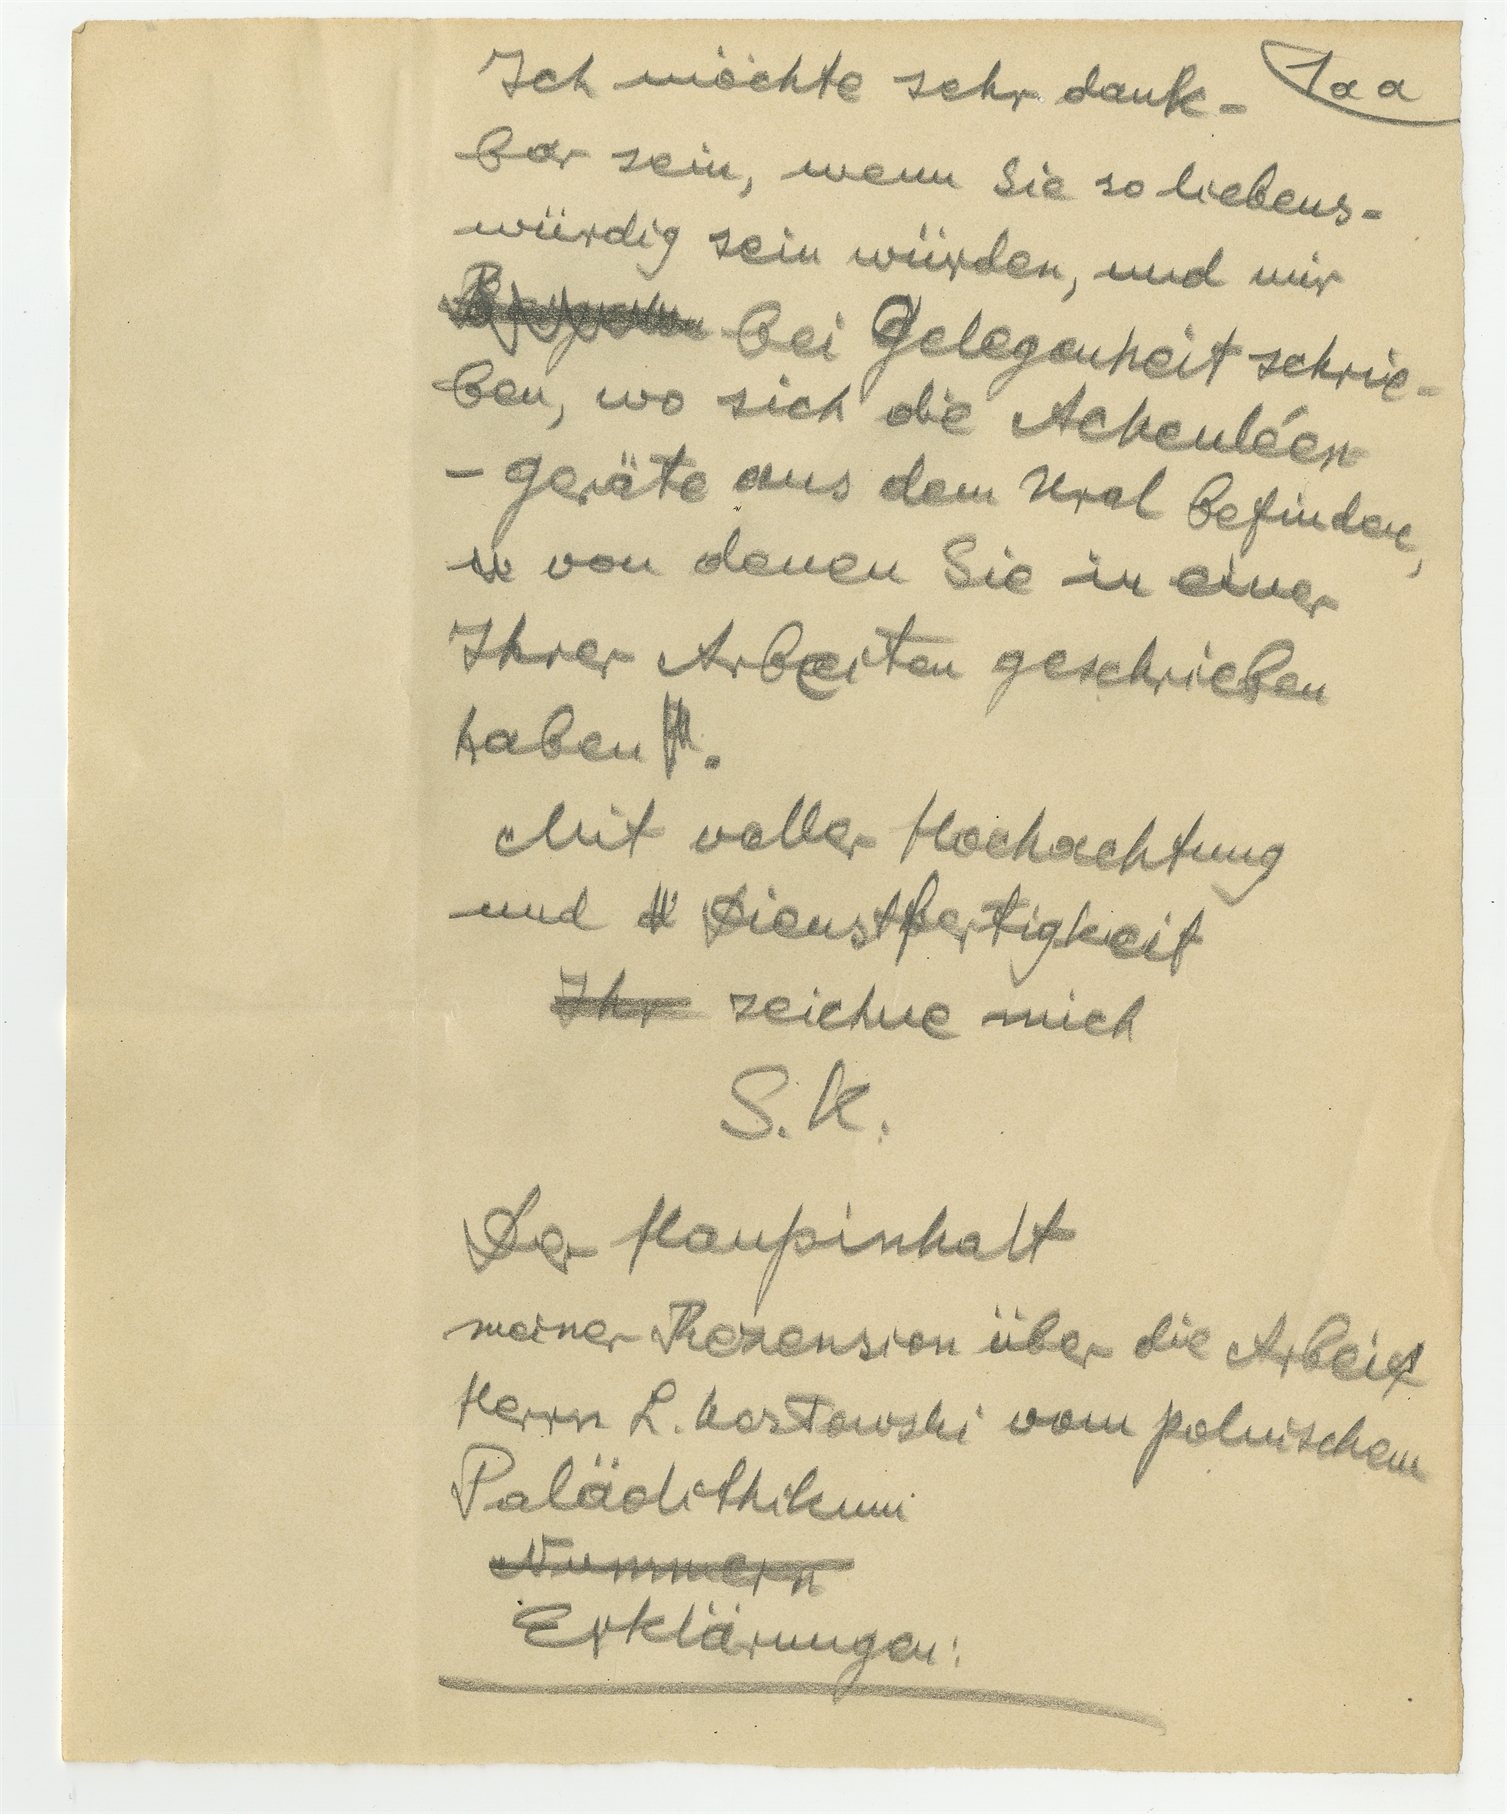 Ich möchte sehr dank- 1aa
bar sein, wenn Sie so liebens-
würdig sein würden, und mir
bei Gelegenheit schrie-
ben, wo sich die Acheuléen
- geräte aus dem Ural befinden,
von denen Sie in einer
Ihrer Arbeiten geschrieben
haben.
Mit voller Hochachtung
und Dienstfertigkeit
Ihr zeichne mich
S. K.
Der Haupinhalt
meiner Rezension über die Arbeit
Herrn L. Kostowski vom polnischem
Paläolithikum
Nummern
Erklärungen: